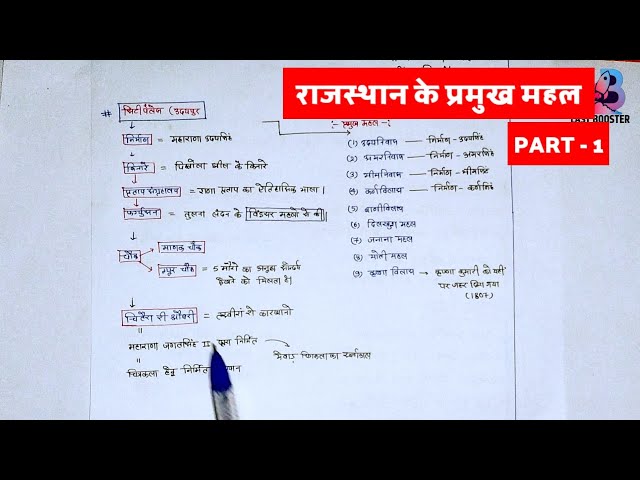 राजस्थान के प्रमुख महल
PART - 1
BOOSTER
# सिटी पैलेस (उदयपुर
निर्माण = महाराणा उदयसिंह
किनारे = पिछोला झील के किनारे
प्रताप संग्रहालय = राणा प्रताप का ऐतिहासिक भाला।
फर्ग्युसन = तुलना लंदन के विंडसर महलों से की
चौक
माणक चौक
मयूर चौक = 5 मोरों का सौन्दर्य
देखने को मिलता है।
चितेरा री ओवरी = तस्वीरां रो कारखानो
महाराणा जगतसिंह II द्वारा निर्मित
मेवाड़ चित्रकला का स्वर्णकाल
चित्रकला हेतु निर्मित
:- प्रमुख महल -:
(1) उदयनिवास — निर्माण - उदयसिंह
(2) अमरनिवास — निर्माण - अमरसिंह
(3) भीमनिवास — निर्माण - भीमसिंह
(4) कर्णविलास — निर्माण - कर्णसिंह
(5) बाड़ीविलास
(6) दिलखुश महल
(7) जनाना महल
(8) मोती महल
(9) कृष्णा विलास → कृष्णा कुमारी को यहीं
पर जहर दिया गया
(1807)